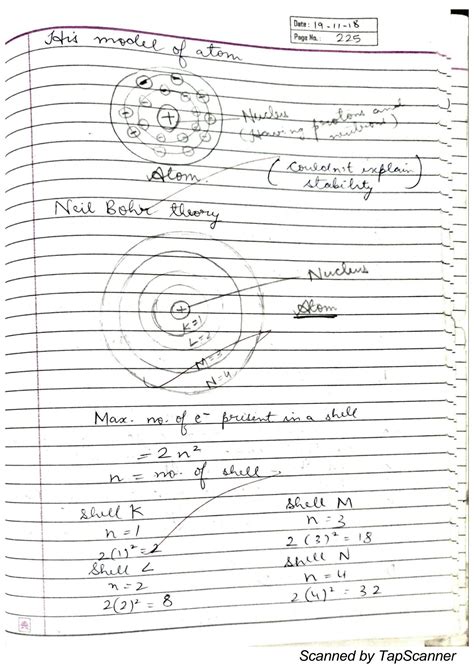 Date: 19-11-18
Page No.: 225
His model of atom
Nucleus
(Having protons and
neutrons)
Atom.
(Couldn't explain
stability)
Neil Bohr theory
Nucleus
Atom
K=1
L=2
M=3
N=4
Max. no. of e⁻ present in a shell
= 2n²
n = no. of shell
Shell K
n = 1
2(1)² = 2
Shell L
n = 2
2(2)² = 8
Shell M
n = 3
2(3)² = 18
Shell N
n = 4
2(4)² = 32
Scanned by TapScanner